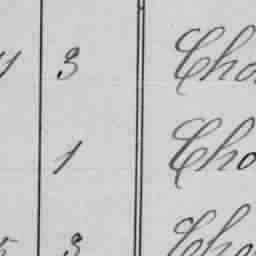 3 Cho
1 Cho
3 Cho